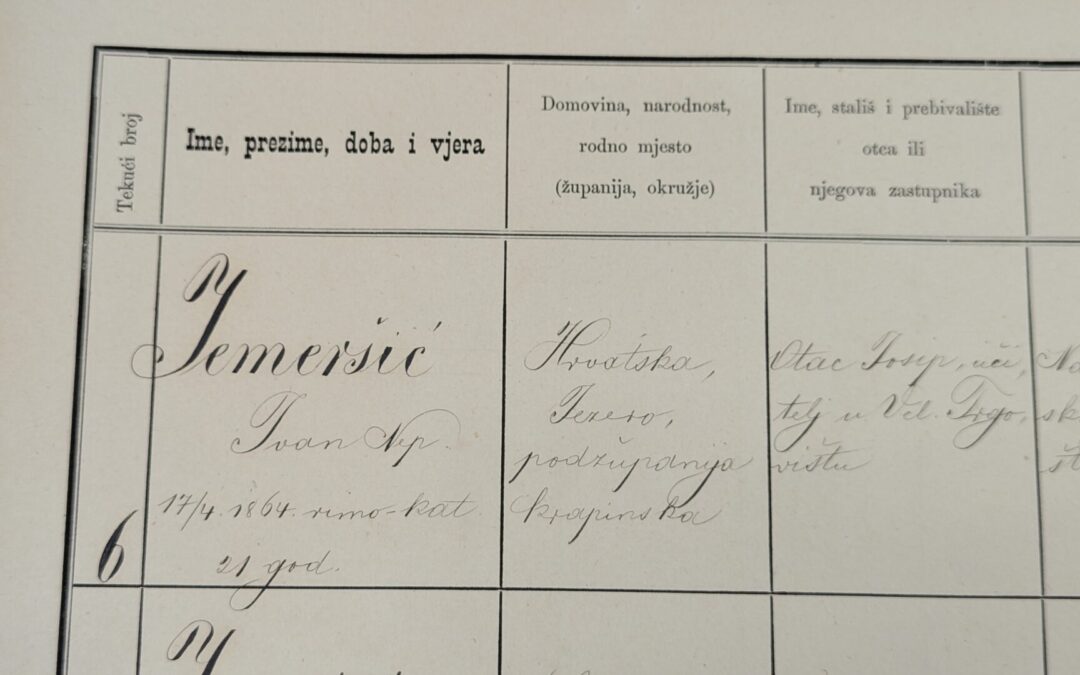 Tekući broj
Ime, prezime, doba i vjera
Domovina, narodnost,
rodno mjesto
(županija, okružje)
Ime, stališ i prebivalište
otca ili
njegova zastupnika
6
Jemeršić
Ivan Nep.
17/4. 1864. rimo-kat.
21 god.
Hrvatska,
Jezero,
podžupanija
krapinska
Otac Josip, uči,
telj u Vel. Trgo,
vištu